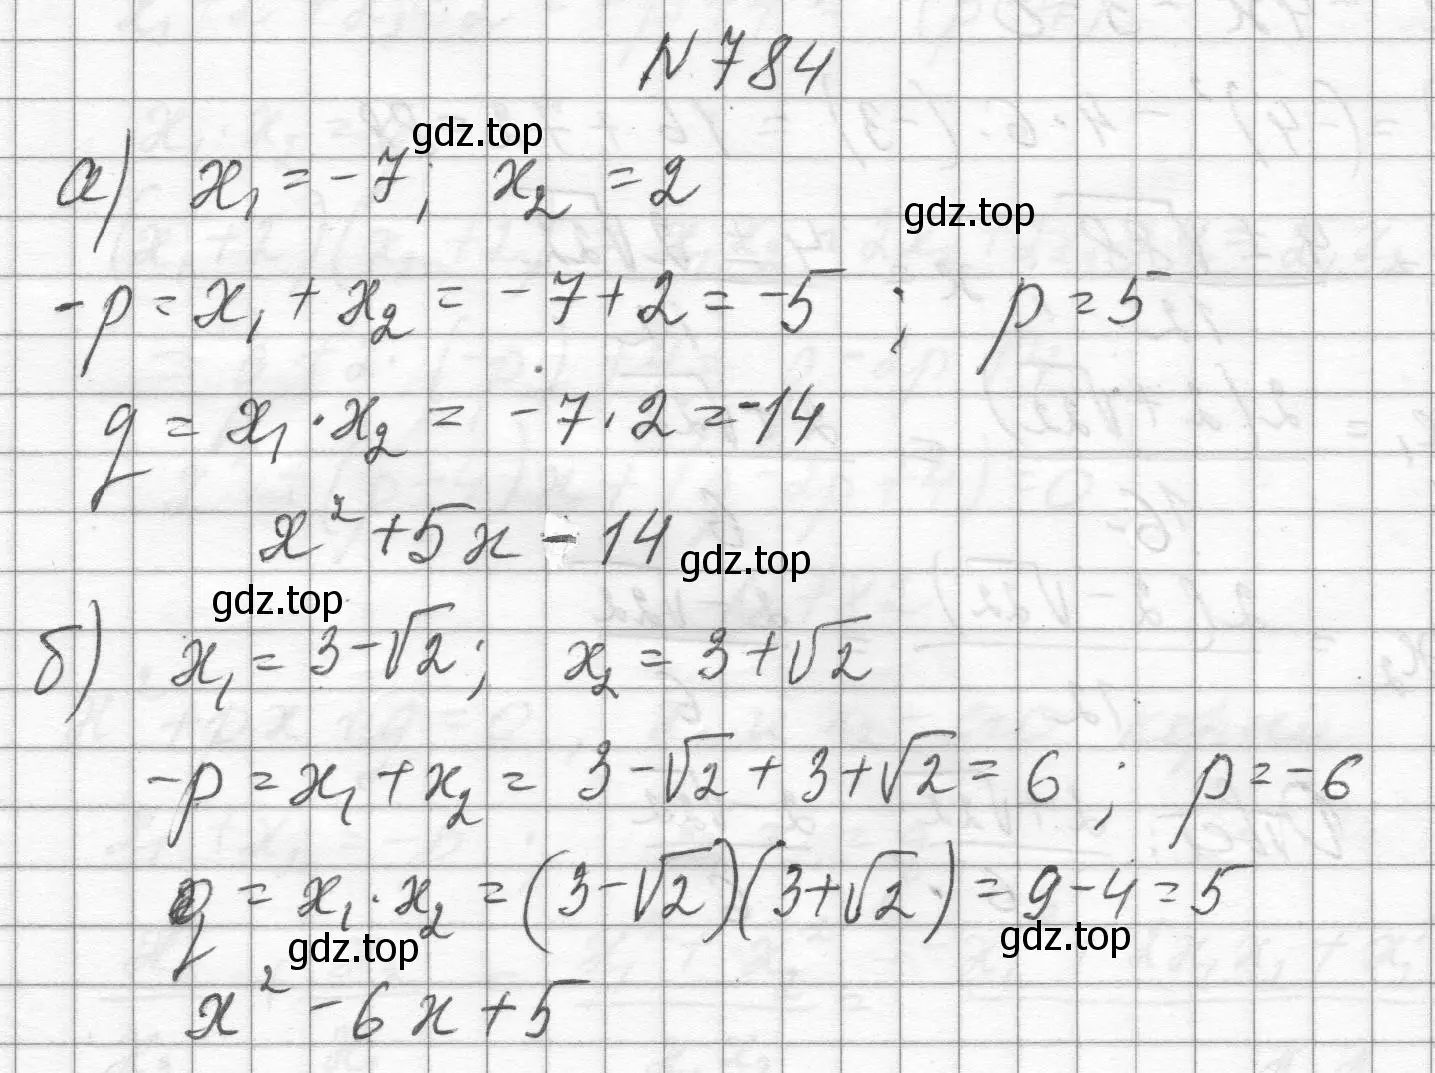 N 784
gdz.top
а) x₁ = -7; x₂ = 2
gdz.top
-p = x₁ + x₂ = -7+2 = -5 ; p = 5
q = x₁ · x₂ = -7 · 2 = -14
x² + 5x - 14
gdz.top
gdz.top
б) x₁ = 3-√2; x₂ = 3+√2
-p = x₁ + x₂ = 3-√2 + 3+√2 = 6 ; p = -6
q = x₁ · x₂ = (3-√2)(3+√2) = 9-4 = 5
gdz.top
gdz.top
x² - 6x + 5